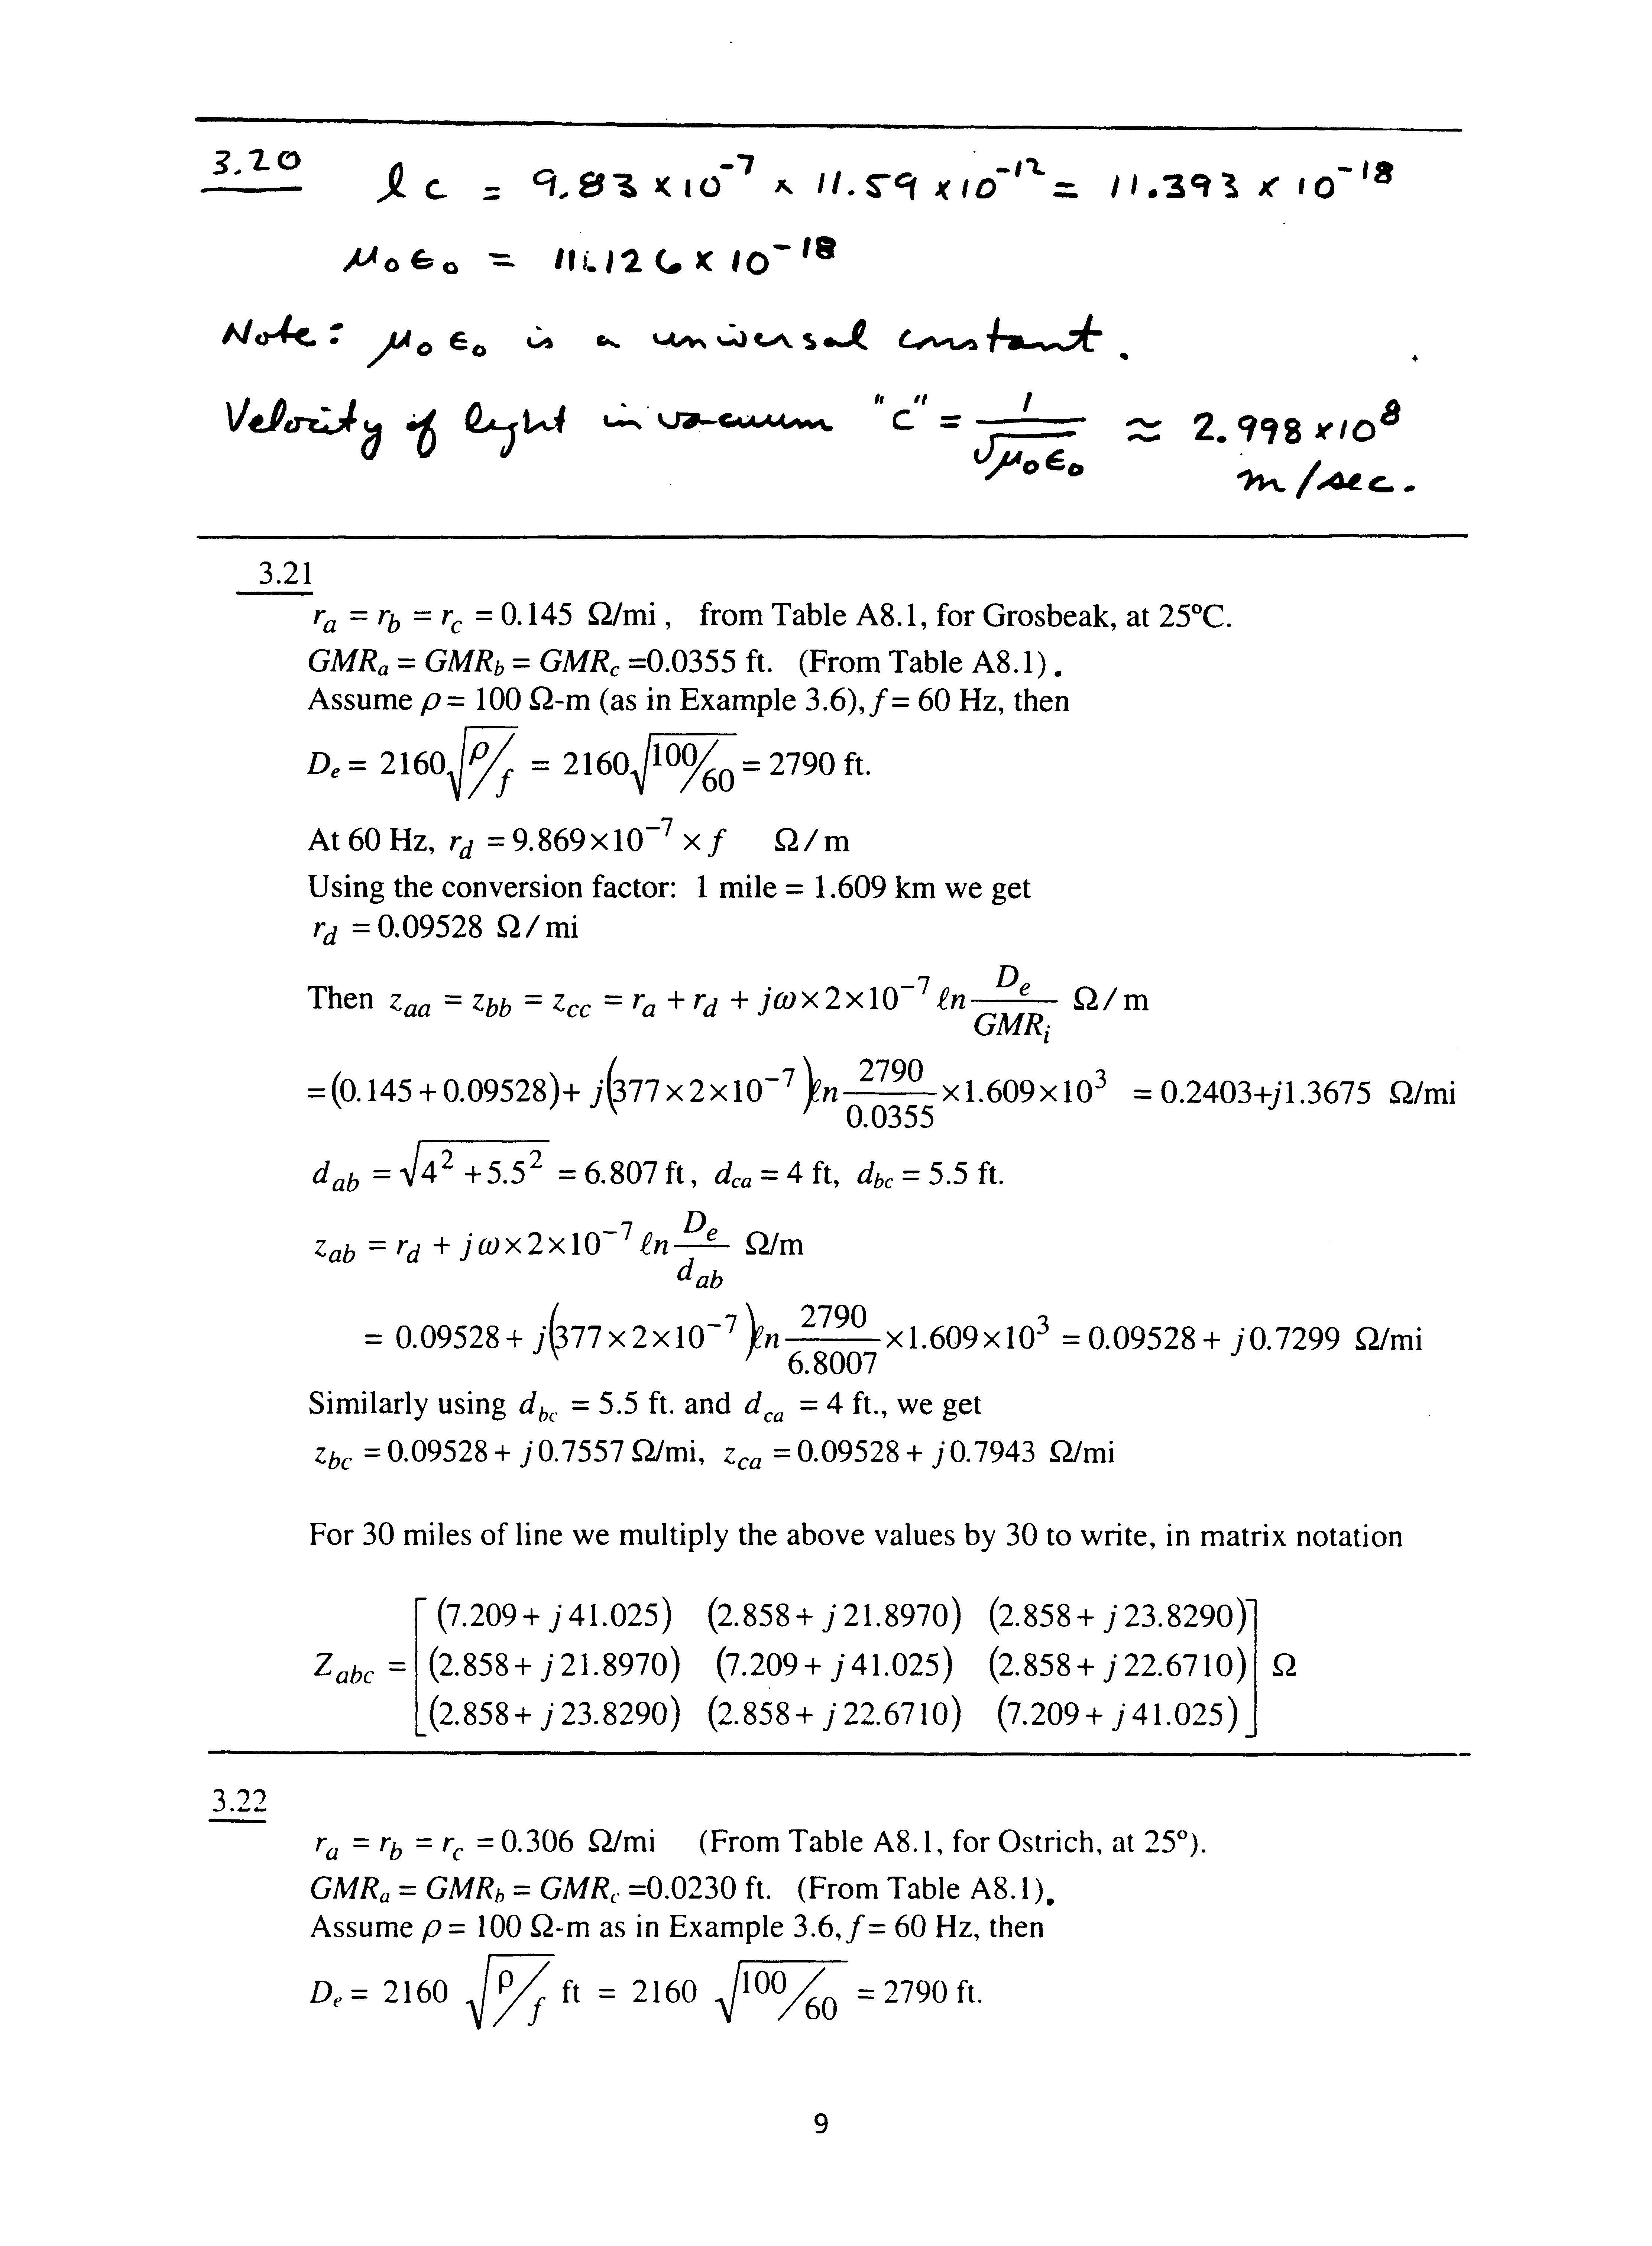 3.20
l c = 9.83 × 10⁻⁷ × 11.59 × 10⁻¹² = 11.393 × 10⁻¹⁸
μ₀ε₀ = 11.126 × 10⁻¹⁸
Note: μ₀ε₀ is a universal constant.
Velocity of light in vacuum "c" = 1/√(μ₀ε₀) ≈ 2.998 × 10⁸
m/sec.
3.21
r_a = r_b = r_c = 0.145 Ω/mi , from Table A8.1, for Grosbeak, at 25°C.
GMR_a = GMR_b = GMR_c =0.0355 ft. (From Table A8.1).
Assume ρ = 100 Ω-m (as in Example 3.6), f = 60 Hz, then
D_e = 2160√(ρ/f) = 2160√(100/60) = 2790 ft.
At 60 Hz, r_d = 9.869×10⁻⁷ × f Ω/m
Using the conversion factor: 1 mile = 1.609 km we get
r_d = 0.09528 Ω/mi
Then z_aa = z_bb = z_cc = r_a + r_d + jω×2×10⁻⁷ ℓn D_e/GMR_i Ω/m
=(0.145+0.09528)+ j(377×2×10⁻⁷)ℓn 2790/0.0355 ×1.609×10³ = 0.2403+j1.3675 Ω/mi
d_ab = √(4² +5.5²) = 6.807 ft, d_ca = 4 ft, d_bc = 5.5 ft.
z_ab = r_d + jω×2×10⁻⁷ ℓn D_e/d_ab Ω/m
= 0.09528+ j(377×2×10⁻⁷)ℓn 2790/6.8007 ×1.609×10³ = 0.09528+ j0.7299 Ω/mi
Similarly using d_bc = 5.5 ft. and d_ca = 4 ft., we get
z_bc = 0.09528+ j0.7557 Ω/mi, z_ca = 0.09528+ j0.7943 Ω/mi
For 30 miles of line we multiply the above values by 30 to write, in matrix notation
(7.209+ j41.025) (2.858+ j21.8970) (2.858+ j23.8290)
Z_abc = (2.858+ j21.8970) (7.209+ j41.025) (2.858+ j22.6710) Ω
(2.858+ j23.8290) (2.858+ j22.6710) (7.209+ j41.025)
3.22
r_a = r_b = r_c = 0.306 Ω/mi (From Table A8.1, for Ostrich, at 25°).
GMR_a = GMR_b = GMR_c =0.0230 ft. (From Table A8.1).
Assume ρ = 100 Ω-m as in Example 3.6, f = 60 Hz, then
D_e = 2160 √(ρ/f) ft = 2160 √(100/60) = 2790 ft.
9